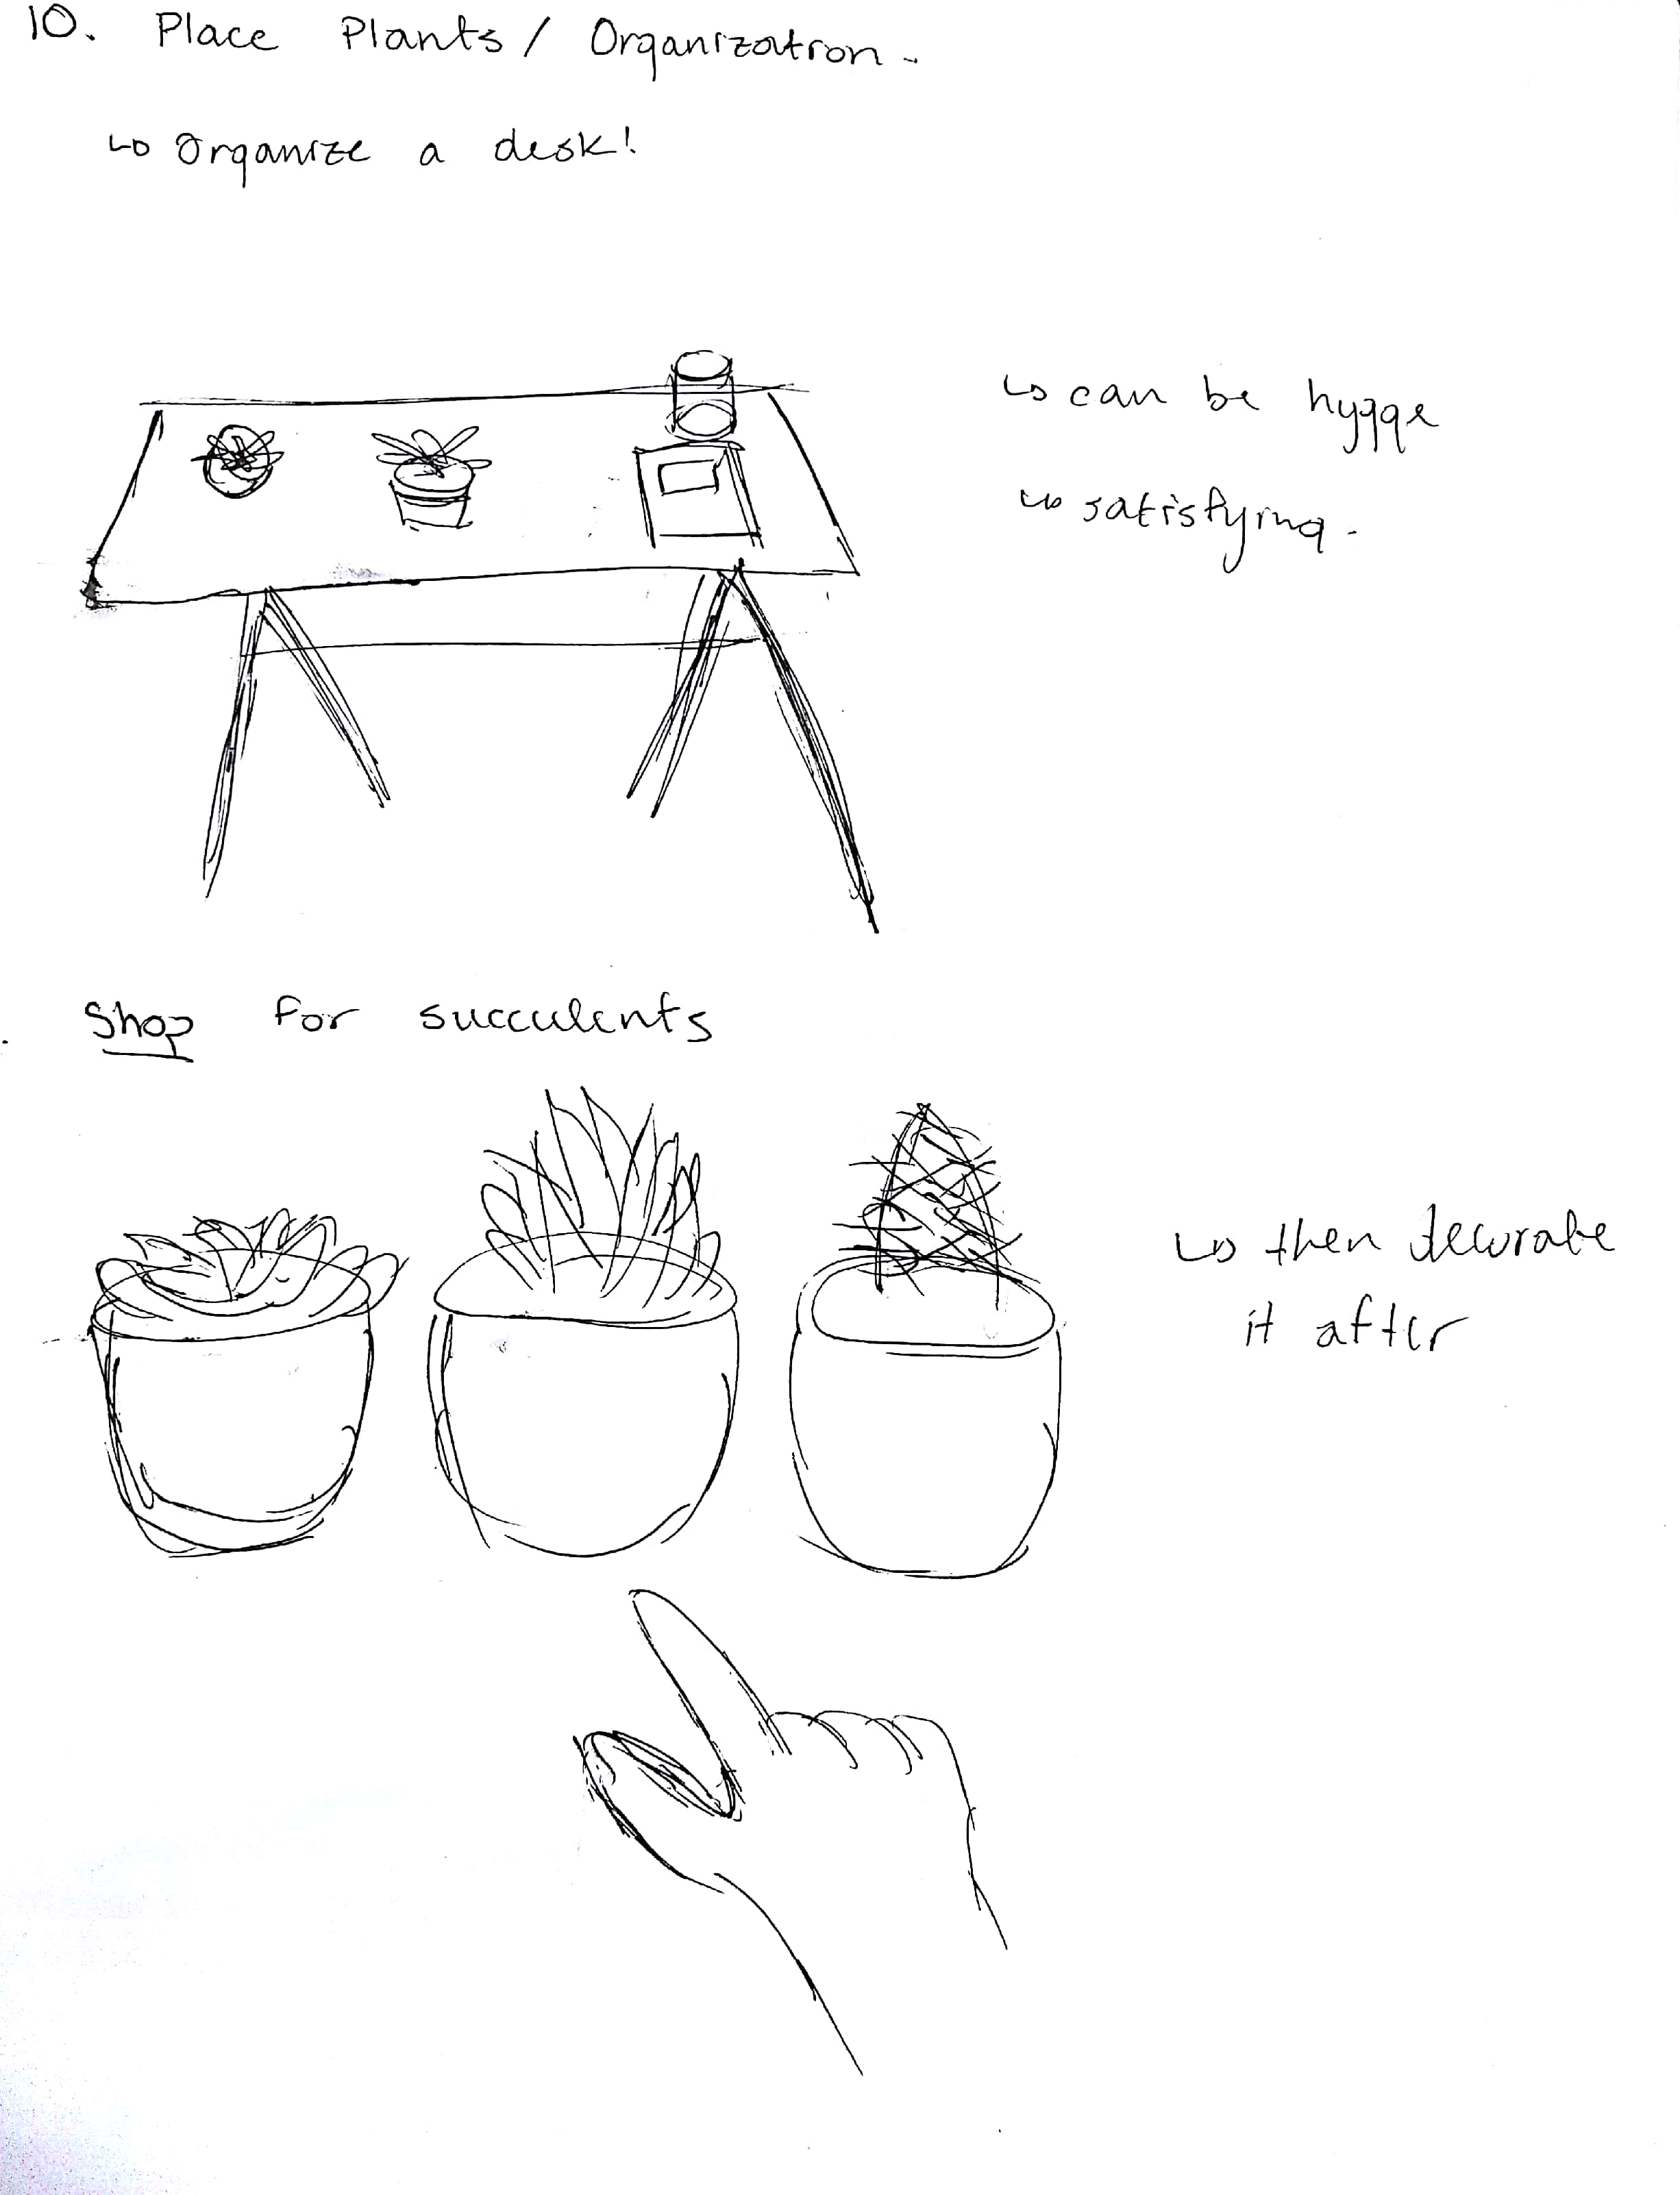 10. Place Plants / Organization.
↳ Organize a desk!
↳ can be hygge
↳ satisfying.
. Shop for succulents
↳ then decorate
it after